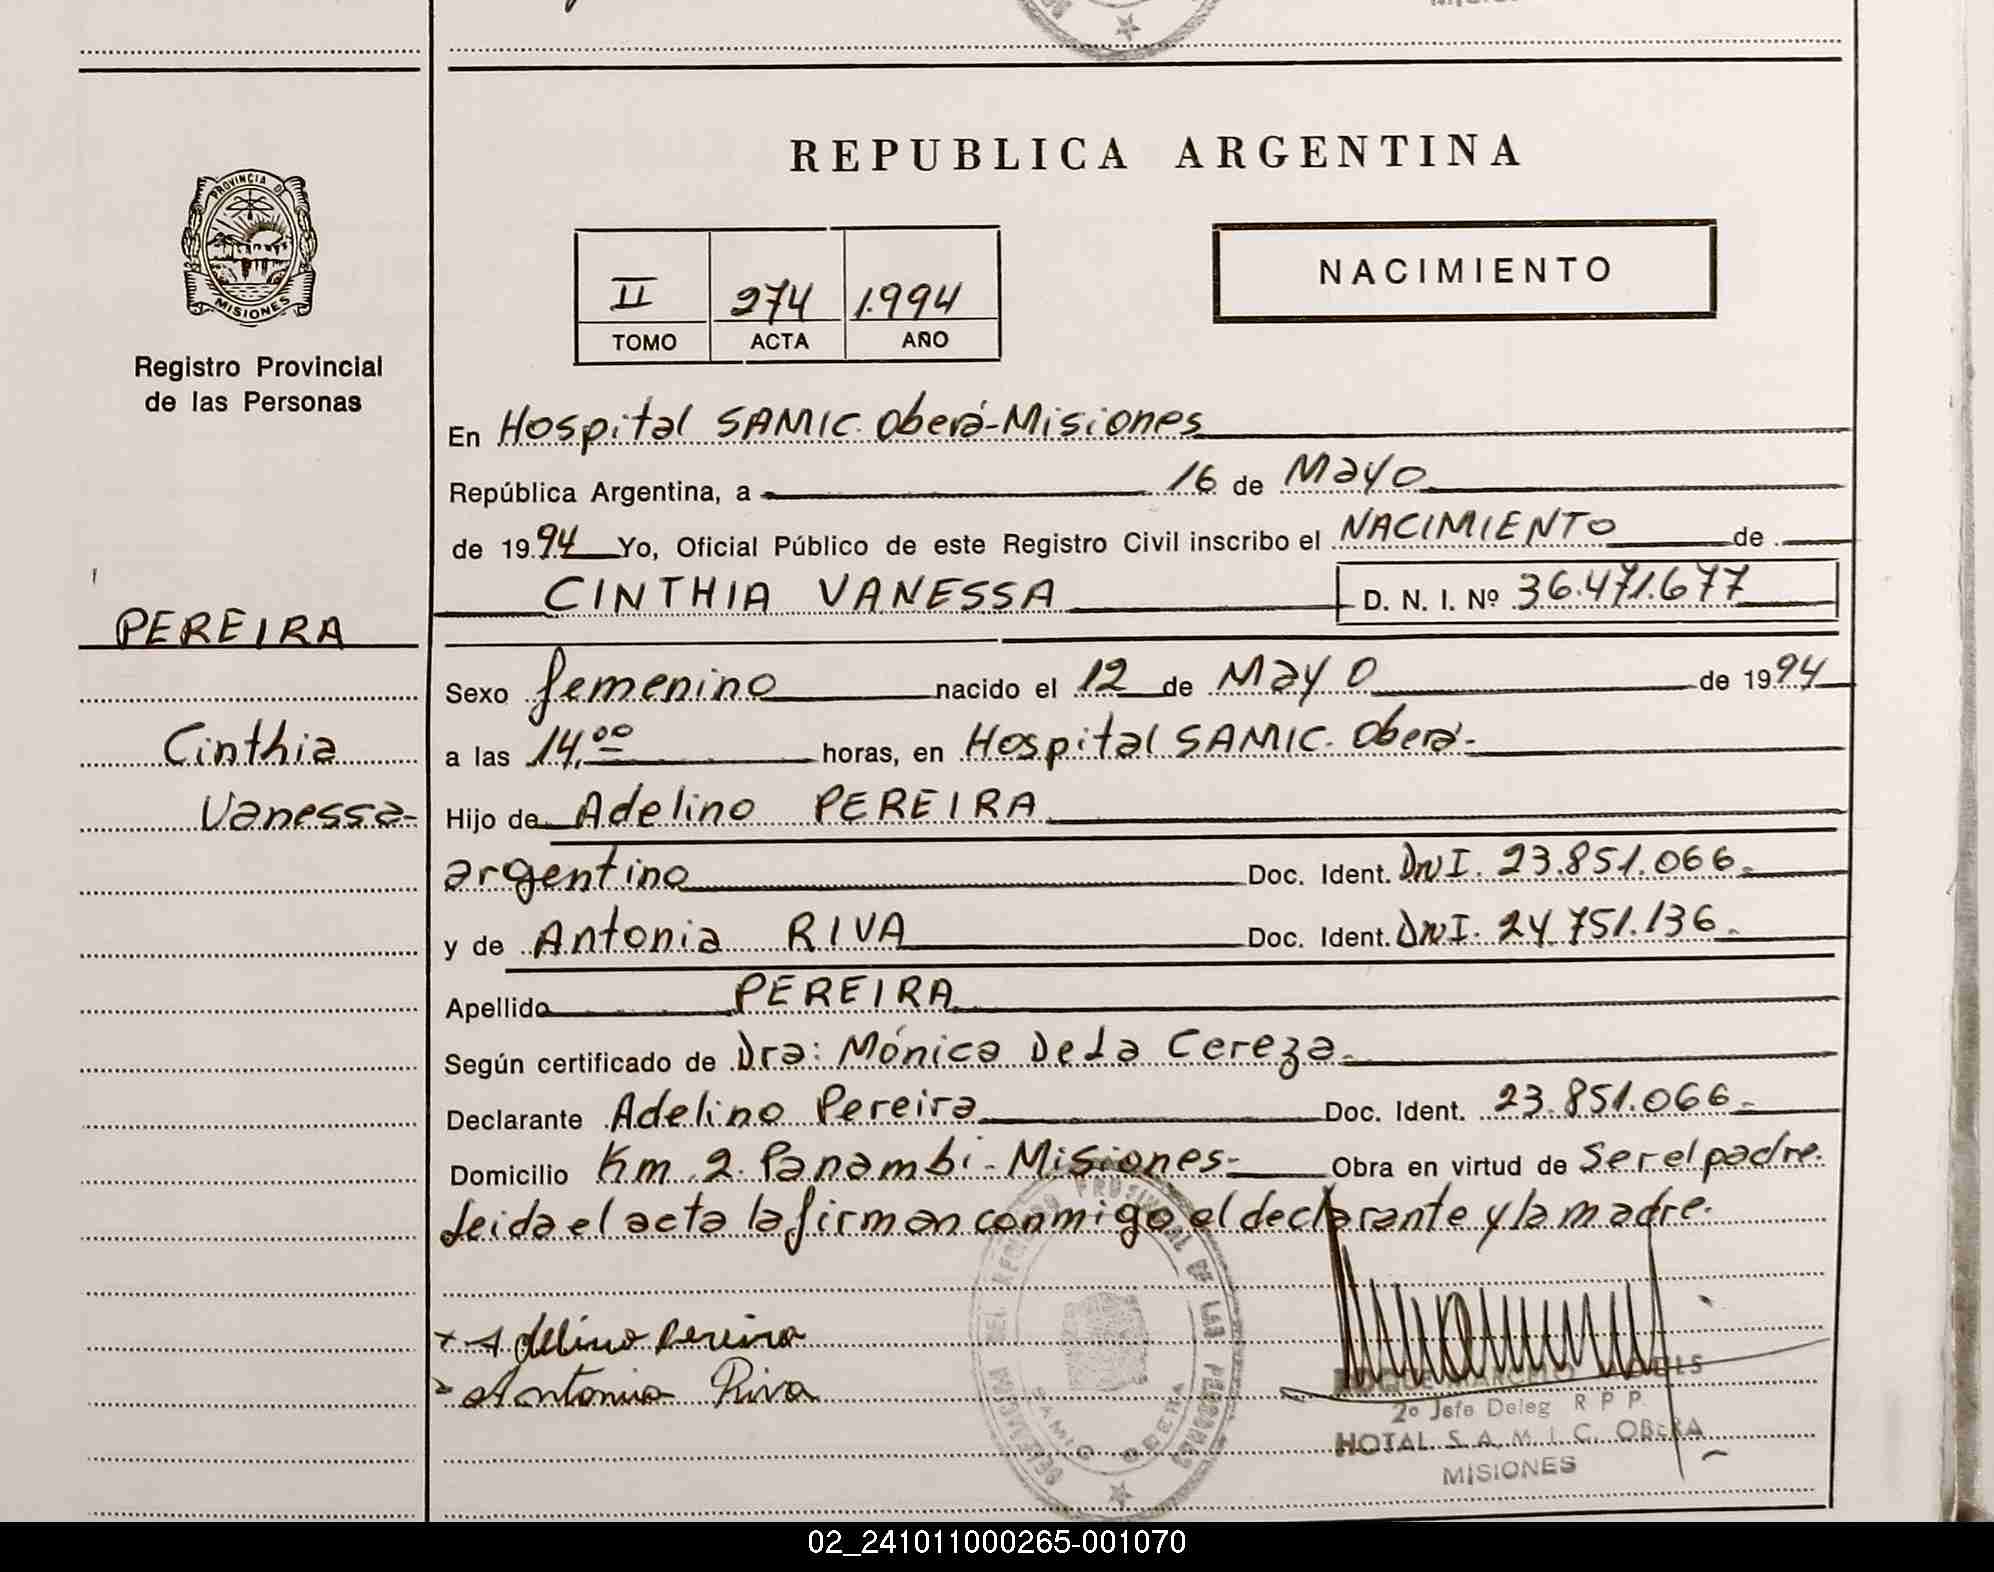 REPUBLICA ARGENTINA
PROVINCIA D
MISIONES
Registro Provincial
de las Personas
II 274 1.994
TOMO ACTA AÑO
NACIMIENTO
En Hospital SAMIC. Oberá-Misiones
República Argentina, a 16 de Mayo
de 1994 Yo, Oficial Público de este Registro Civil inscribo el NACIMIENTO de
CINTHIA VANESSA D. N. I. Nº 36.471.677
PEREIRA
Cinthia
Vanessa-
Sexo femenino nacido el 12 de Mayo de 1994
a las 14,00 horas, en Hospital SAMIC. Oberá-
Hijo de Adelino PEREIRA
argentino Doc. Ident. DNI. 23.851.066-
y de Antonia RIVA Doc. Ident. DNI. 24.751.136-
Apellido PEREIRA
Según certificado de Dra: Mónica De La Cereza-
Declarante Adelino Pereira Doc. Ident. 23.851.066-
Domicilio Km 2. Panambi - Misiones- Obra en virtud de Ser el padre.
Leida el acta la firman conmigo el declarante y la madre.
Adelino Pereira
Antonia Riva
DE LAS PERSONAS
SAMIC OBERA
2º Jefe Deleg R P P.
HOTAL S. A. M. I. C. OBERA
MISIONES
02_241011000265-001070